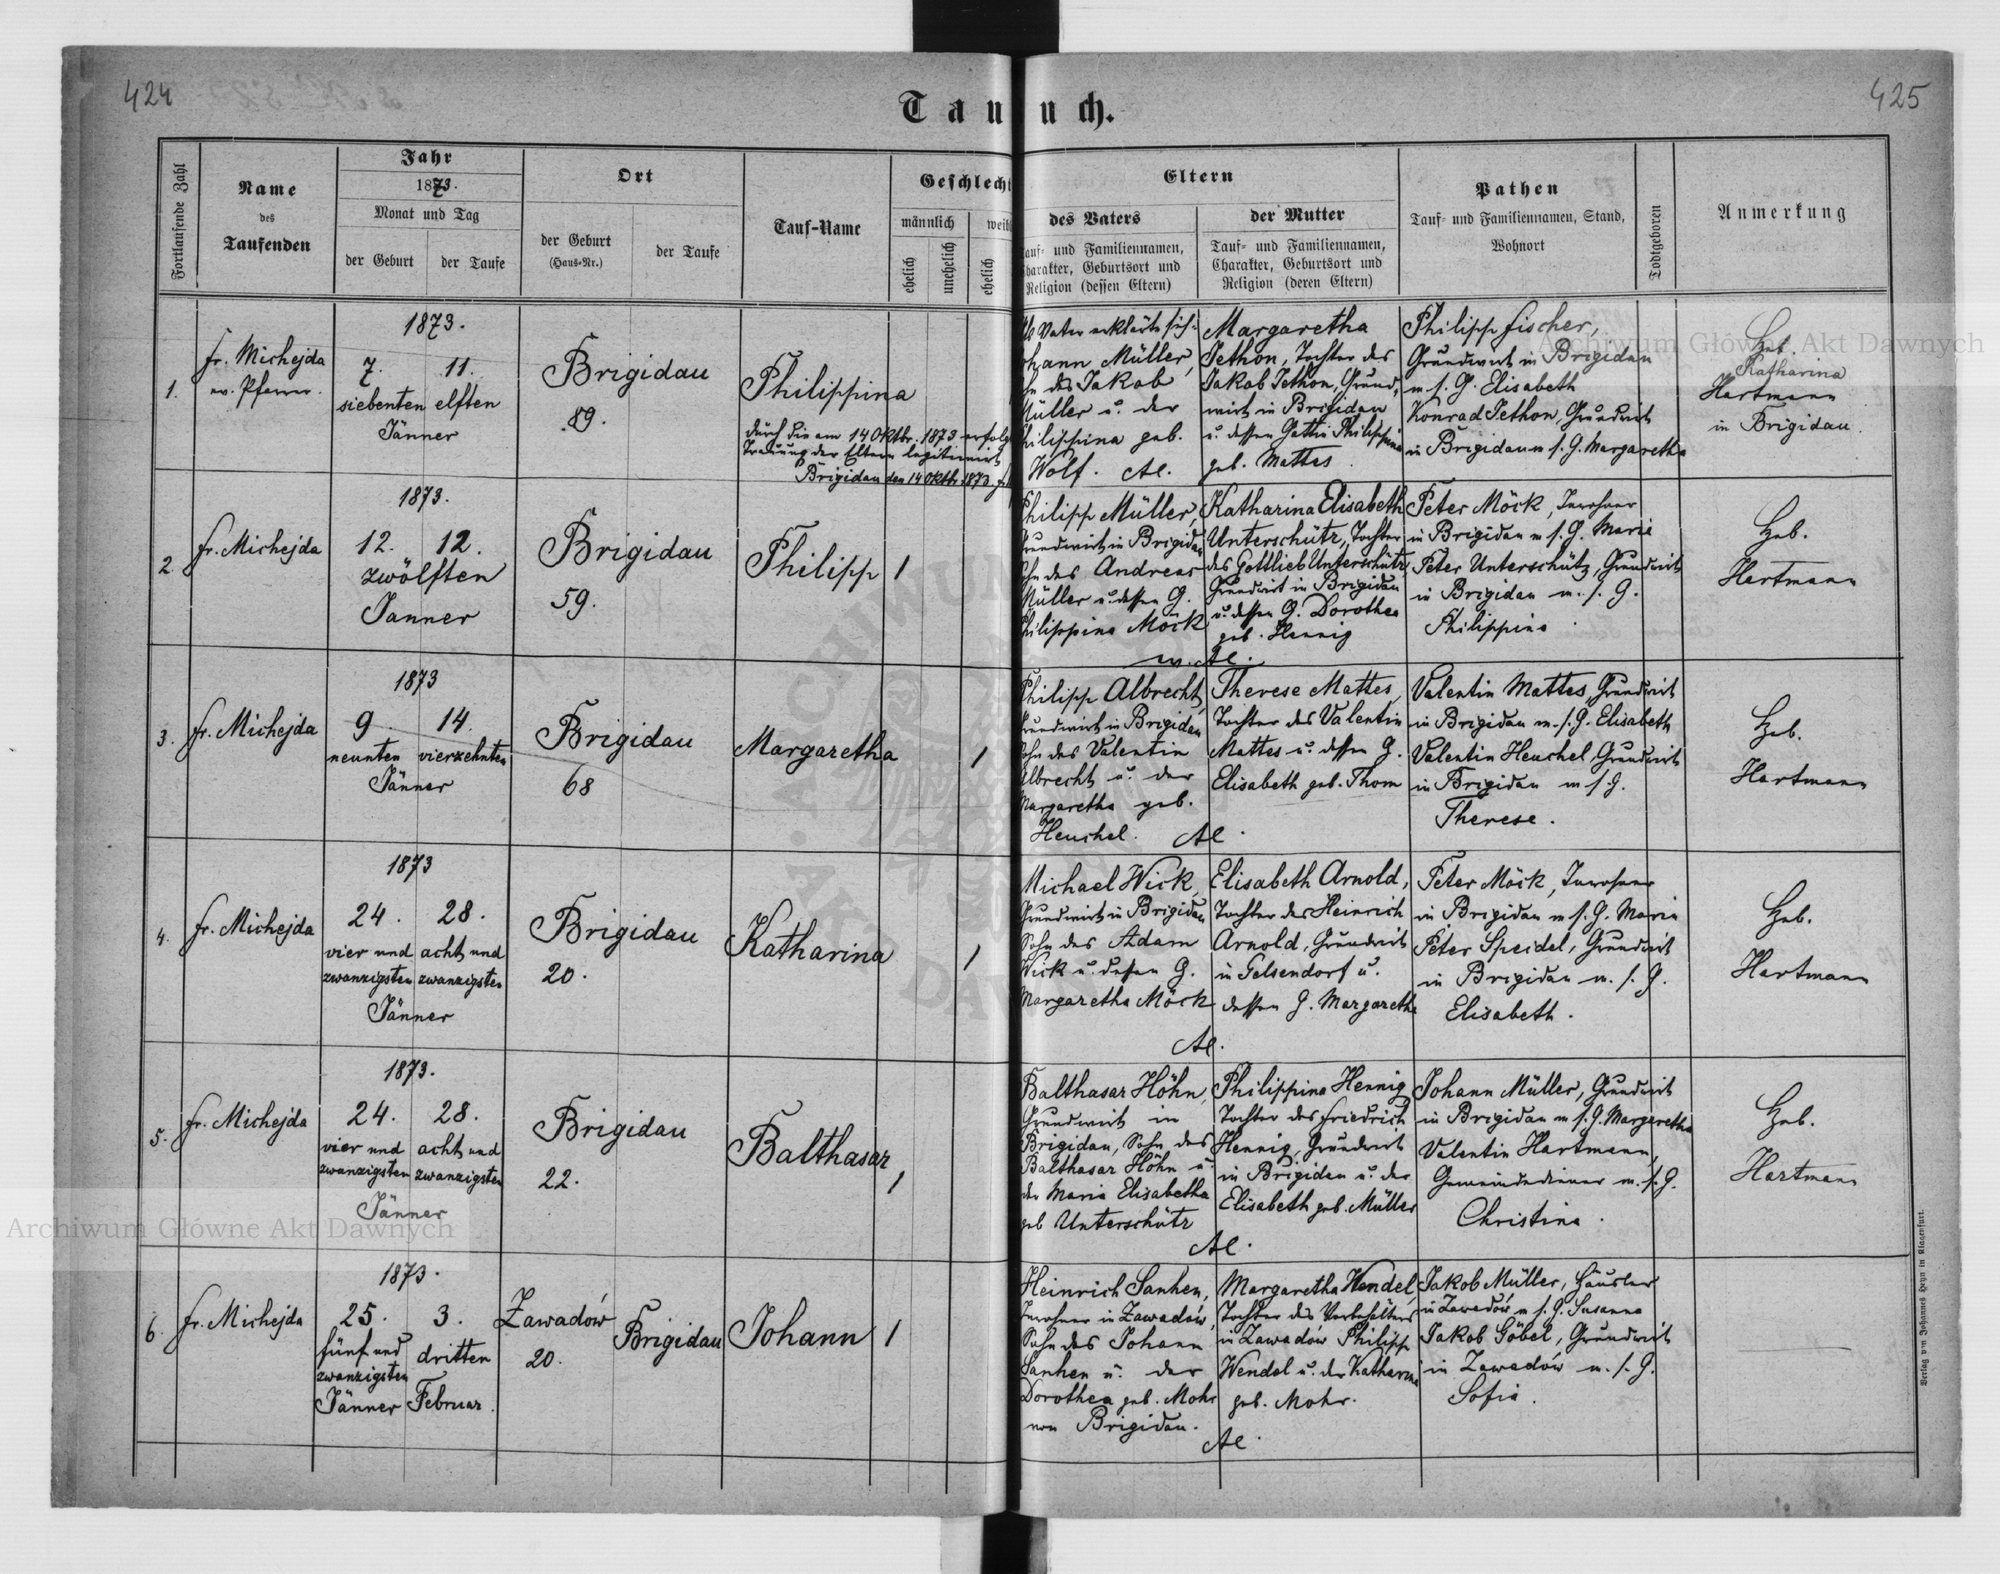 424
425
Tau
uch.
Fortlaufende Zahl
Name
des
Taufenden
Jahr
1873.
Monat und Tag
der Geburt
der Taufe
Ort
der Geburt
(Haus-Nr.)
der Taufe
Tauf-Name
Geschlecht
männlich
weibl
ehelich
unehelich
ehelich
Eltern
des Vaters
auf- und Familiennamen,
harakter, Geburtsort und
Religion (dessen Eltern)
der Mutter
Tauf- und Familiennamen,
Charakter, Geburtsort und
Religion (deren Eltern)
Pathen
Tauf- und Familiennamen, Stand,
Wohnort
Todtgeboren
Anmerkung
1.
Fr. Michejda
ev. Pfarrer.
1873.
7. 11.
siebenten elften
Jänner
Brigidau
89.
Philippina
durch die am 14 Oktbr. 1873 erfolg
Trauung der Eltern legitimirt
Brigidau den 14 Oktb. 1873.
Vater erklärte sich
hann Müller,
hn des Jakob
Müller u. der
hilippina geb.
Wolf. Al.
Margaretha
Jethon, Tochter des
Jakob Jethon, Grund-
wirt in Brigidau
u. dessen Gattin Philippina
geb. Mattes.
Philipp Fischer,
Grundwirt in Brigidau
m s. G. Elisabeth
Konrad Jethon, Grundwirt
in Brigidau m s. G. Margaretha
Heb.
Katharina
Hartmann
in Brigidau.
2
Fr. Michejda
1873.
12. 12.
zwölften
Janner
Brigidau
59.
Philipp
1
Philipp Müller,
Grundwirt in Brigidau
Sohn des Andreas
Müller u. dessen G.
Philippina Möck
Katharina Elisabeth
Unterschütz, Tochter
des Gottlieb Unterschütz
Grundwirt in Brigidau
u. dessen G. Dorothea
geb. Hennig
Al.
Peter Möck, Inwohner
in Brigidau m s. G. Marie
Peter Unterschütz, Grundwirt
in Brigidau m. s. G.
Philippina.
Heb.
Hartmann
3.
Fr. Michejda
1873
9 14.
neunten vierzehnten
Jänner
Brigidau
68
Margaretha
1
Philipp Albrecht,
Grundwirt in Brigidau
Sohn des Valentin
Albrecht u. der
Margaretha geb.
Heuchel. Al.
Therese Mattes,
Tochter des Valentin
Mattes u. dessen G.
Elisabeth geb. Thom
Valentin Mattes, Grundwirt
in Brigidau m. s. G. Elisabeth
Valentin Heuchel Grundwirt
in Brigidau m s G.
Therese.
Heb.
Hartmann
4.
Fr. Michejda
1873
24. 28.
vier und acht und
zwanzigsten zwanzigsten
Jänner
Brigidau
20.
Katharina
1
Michael Wick,
Grundwirt in Brigidau
Sohn des Adam
Wick u. dessen G.
Margaretha Möck
Al.
Elisabeth Arnold,
Tochter des Heinrich
Arnold, Grundwirt
in Gelsendorf u.
dessen G. Margaretha
Peter Möck, Inwohner
in Brigidau m s. G. Maria
Peter Speidel, Grundwirt
in Brigidau m. s. G.
Elisabeth.
Heb.
Hartmann
5.
Fr. Michejda
1873.
24. 28.
vier und acht und
zwanzigsten zwanzigsten
Jänner
Brigidau
22.
Balthasar
1
Balthasar Höhn,
Grundwirt in
Brigidau, Sohn des
Balthasar Höhn u
der Maria Elisabetha
geb Unterschütz
Al.
Philippina Hennig
Tochter des Friedrich
Hennig, Grundwirt
in Brigidau u. der
Elisabeth geb. Müller
Johann Müller, Grundwirt
in Brigidau m s. G. Margaretha
Valentin Hartmann,
Gemeindediener m. s. G.
Christina.
Heb.
Hartmann
6.
Fr. Michejda
1873.
25. 3.
fünf und dritten
zwanzigsten
Jänner Februar.
Zawadów
20.
Brigidau
Johann
1
Heinrich Sanhen,
Inwohner in Zawadów,
Sohn des Johann
Sanhen u. der
Dorothea geb. Mohr
von Brigidau.
Al.
Margaretha Wendel,
Tochter des
in Zawadów Philipp
Wendel u. der Katharina
geb. Mohr.
Jakob Müller, Häusler
in Zawadów m s. G. Susanna
Jakob Göbel, Grundwirt
in Zawadów m. s. G.
Sofia.
Verlag von Johannes Heyn in Klagenfurt.
Archiwum Główne Akt Dawnych
Archiwum Główne Akt Dawnych